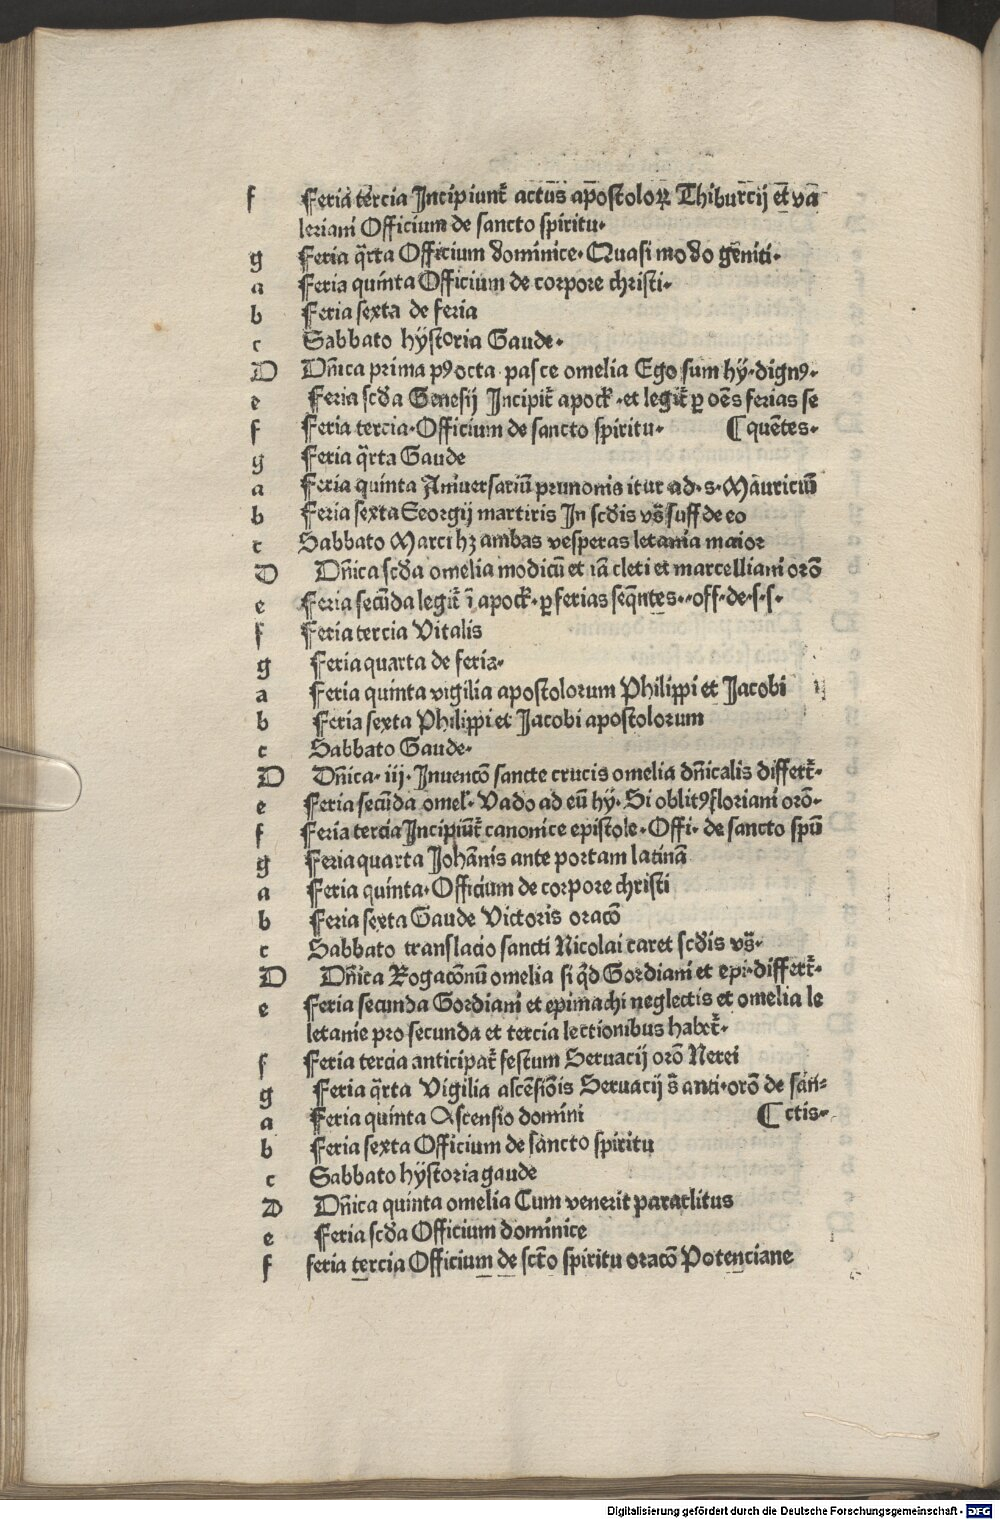 f Feria tercia Incipiunt̄ actus ap̄ostoloꝝ Thiburcij et va
leriani Officium de sancto spiritu·
g Feria q̄rta Officium dominice· Quasi modo geniti·
a Feria quinta Officium de corpore christi·
b Feria sexta de feria
c Sabbato hÿstoria Gaude·
D Dn̄ica prima pꝰ octa pasce omelia Ego sum hy·dignꝰ·
e Feria scd̄a Genesij Incipit̄ apock̄·et legit̄ ꝑ oēs ferias se
f Feria tercia·Officium de sancto spiritu· ⸿quētes·
g Feria q̄rta Gaude
a Feria quinta Aniuersariū prunonis itur ad·s·Mauriciū
b Feria sexta Georgij martiris In scd̄is vs̄ suff de eo
c Sabbato Marci hꝫ ambas vesperas letania maior
D Dn̄ica scd̄a omelia modicū et iā cleti et marcelliani orō
e Feria secūda legit̄ ī apock̄·ꝑ ferias seq̄ntes··off·de·s·s·
f Feria tercia Vitalis
g Feria quarta de feria·
a Feria quinta vigilia apostolorum Philippi et Jacobi
b Feria sexta Philippi et Jacobi apostolorum
c Sabbato Gaude·
D Dn̄ica·iij·Inuencō sancte crucis omelia dn̄icalis differt̄·
e Feria secūda omel̄·Vado ad eū hy·Si oblitꝰ floriani orō·
f Feria tercia Incipiūt̄ canonice epistole·Offi·de sancto spū
g Feria quarta Johānis ante portam latinā
a Feria quinta·Officium de corpore christi
b Feria sexta Gaude Victoris oracō
c Sabbato translacio sancti Nicolai caret scd̄is vs̄·
D Dn̄ica Rogacōnū omelia si q̄d Gordiani et epi·differt̄·
e Feria secunda Gordiani et epimachi neglectis et omelia le
letanie pro secunda et tercia lectionibus habet̄·
f Feria tercia anticipat̄ festum Seruacij orō Nerei
g Feria q̄rta Vigilia ascēsiōis Seruacij s̄ anti·orō de san-
a Feria quinta Ascensio domini ⸿ctis·
b Feria sexta Officium de sancto spiritu
c Sabbato hÿstoria gaude
D Dn̄ica quinta omelia Cum venerit paraclitus
e Feria scd̄a Officium dominice
f feria tercia Officium de sct̄o spiritu oracō Potenciane
Digitalisierung gefördert durch die Deutsche Forschungsgemeinschaft - DFG